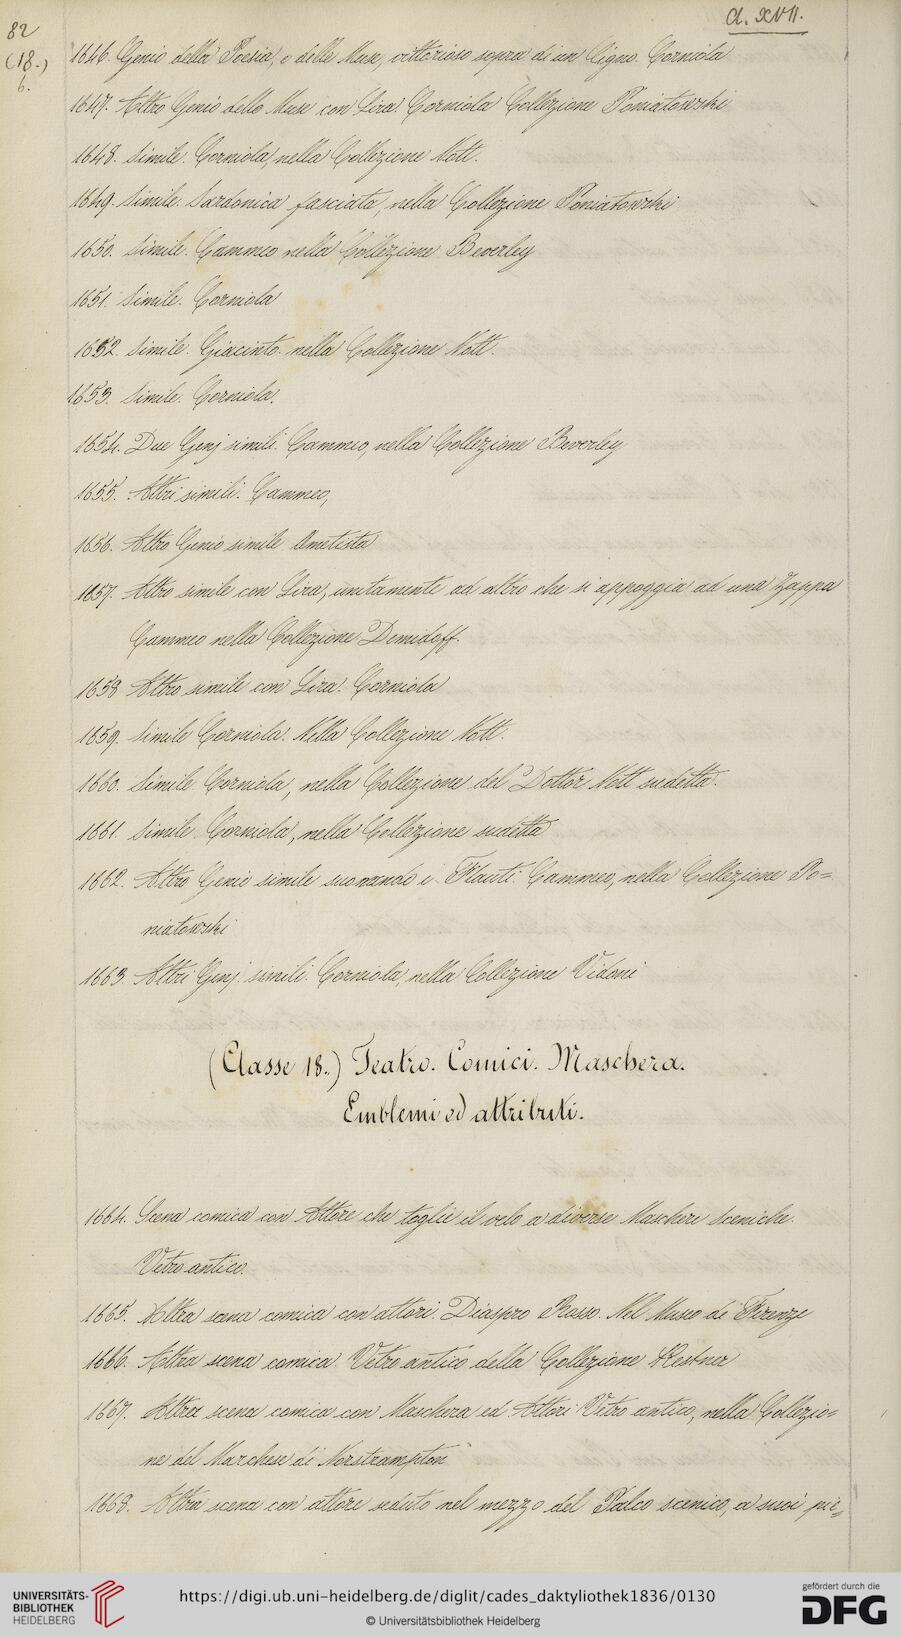 82
(18.)
6.
Cl. XVII.
1646. Genio della Poesia, o delle Muse, vittorioso sopra di un Cigno. Corniola
1647. Altro Genio delle Muse con Lira. Corniola Collezione Poniatowski
1648. Simile. Corniola, nella Collezione Nott.
1649. Simile. Sardonica fasciata, nella Collezione Poniatowski
1650. Simile. Cammeo nella Collezione Beverley
1651. Simile. Corniola
1652. Simile. Giacinto nella Collezione Nott.
1653. Simile. Corniola.
1654. Due Genj simili. Cammeo, nella Collezione Beverley
1655. Altri simili. Cammeo,
1656. Altro Genio simile Ametista
1657. Altro simile con Lira, unitamente ad altro che si appoggia ad una Zappa
Cammeo nella Collezione Demidoff.
1658 Altro simile con Lira. Corniola
1659. Simile Corniola. Nella Collezione Nott.
1660. Simile. Corniola, nella Collezione del Dottor Nott sudetta.
1661. Simile. Corniola, nella Collezione sudetta
1662. Altro Genio simile suonando i Flauti. Cammeo, nella Collezione Po=
niatowski
1663. Altri Genj simili. Corniola, nella Collezione Vidoni
(Classe 18.) Teatro. Comici. Maschera.
Emblemi ed attributi.
1664. Scena comica con Attore che toglie il velo a diverse Maschere Sceniche.
Vetro antico.
1665. Altra scena comica con attori. Diaspro Rosso. Nel Museo di Firenze
1666. Altra scena comica. Vetro antico della Collezione Kestner
1667. Altra scena comica con Maschera ed Attori Vetro antico, nella Collezio=
ne del Marchese di Norstrampton
1668. Altra scena con attore seduto nel mezzo del Palco scenico, a suoi pie=
UNIVERSITÄTS-
BIBLIOTHEK
HEIDELBERG
https://digi.ub.uni-heidelberg.de/diglit/cades_daktyliothek1836/0130
© Universitätsbibliothek Heidelberg
gefördert durch die
DFG